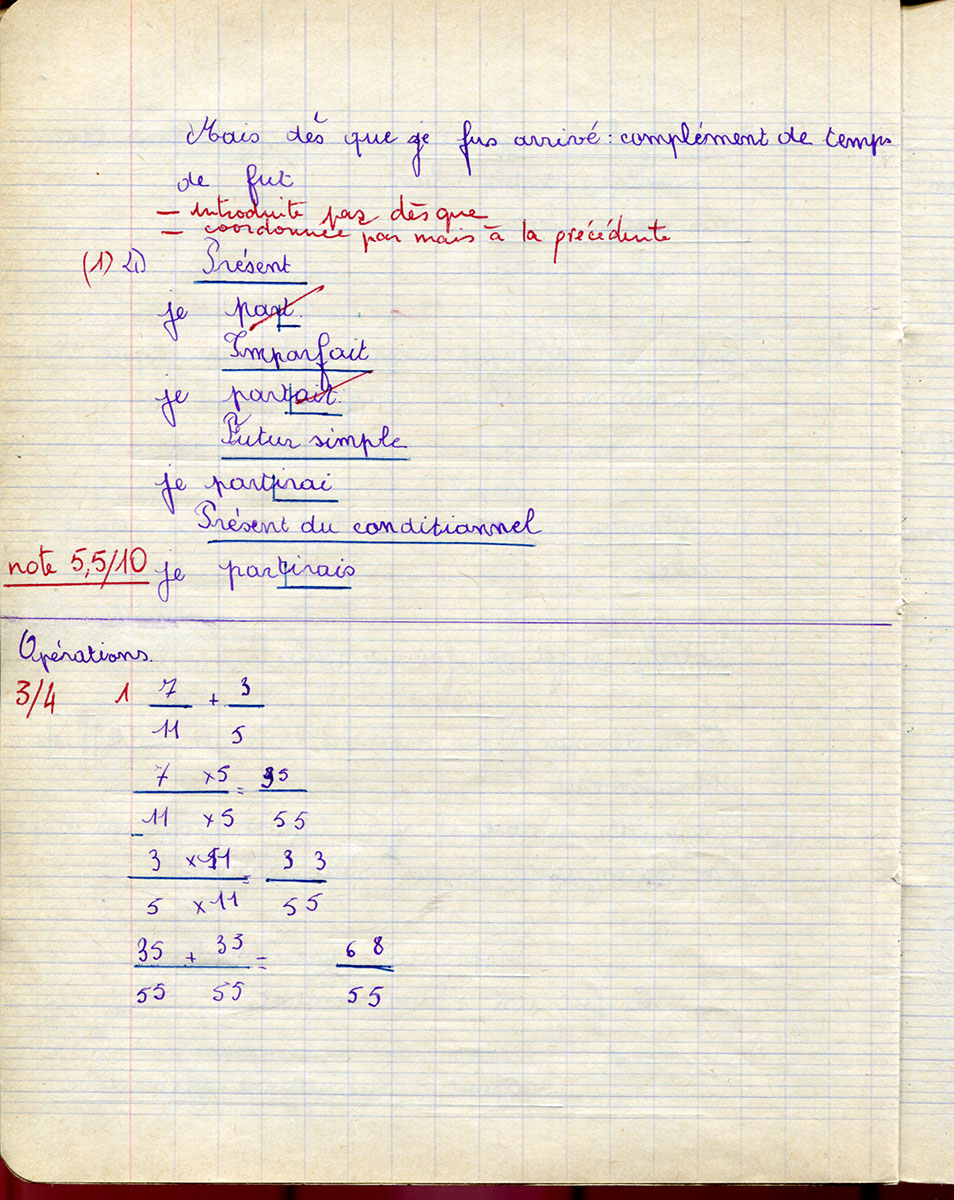 Mais dès que je fus arrivé : complément de temps
de fut
– introduite par dès que
– coordonnée par mais à la précédente
(1) 4) Présent
je part.
Imparfait
je partait.
Futur simple
je partirai
Présent du conditionnel
note 5,5/10 je partirais
Opérations.
3/4 1 7/11 + 3/5
7 ×5 / 11 ×5 = 35/55
3 ×11 / 5 ×11 = 33/55
35/55 + 33/55 = 68/55